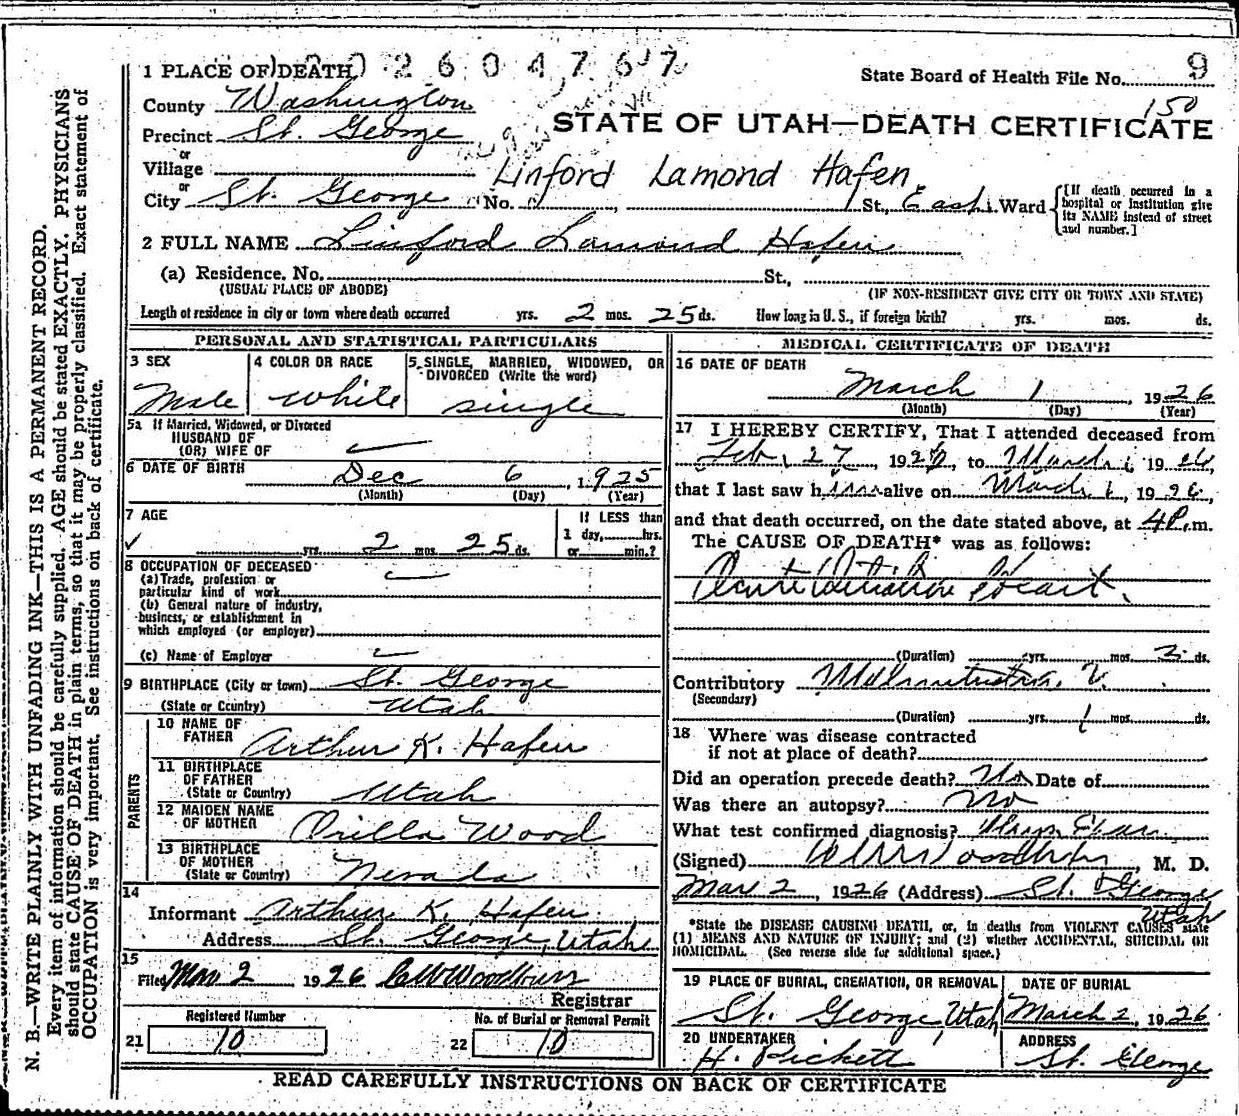 N. B.—WRITE PLAINLY WITH UNFADING INK—THIS IS A PERMANENT RECORD.
Every item of information should be carefully supplied. AGE should be stated EXACTLY. PHYSICIANS
should state CAUSE OF DEATH in plain terms, so that it may be properly classified. Exact statement of
OCCUPATION is very important. See instructions on back of certificate.
1 PLACE OF DEATH 260 4767
State Board of Health File No. 9
150
County Washington
STATE OF UTAH—DEATH CERTIFICATE
Precinct St. George
or
Village
Linford Lamond Hafen
or
City St. George No. St., East Ward
[If death occurred in a
hospital or institution give
its NAME instead of street
and number.]
2 FULL NAME Linford Lamond Hafen
(a) Residence. No. St.,
(USUAL PLACE OF ABODE) (IF NON-RESIDENT GIVE CITY OR TOWN AND STATE)
Length of residence in city or town where death occurred yrs. 2 mos. 25 ds. How long in U. S., if foreign birth? yrs. mos. ds.
PERSONAL AND STATISTICAL PARTICULARS
3 SEX
Male
4 COLOR OR RACE
White
5. SINGLE, MARRIED, WIDOWED, OR
DIVORCED (Write the word)
single
5a If Married, Widowed, or Divorced
HUSBAND OF
(OR) WIFE OF
6 DATE OF BIRTH
Dec 6, 1925
(Month) (Day) (Year)
7 AGE
yrs. 2 mos. 25 ds.
If LESS than
1 day, hrs.
or min.?
8 OCCUPATION OF DECEASED
(a) Trade, profession or
particular kind of work
(b) General nature of industry,
business, or establishment in
which employed (or employer)
(c) Name of Employer
9 BIRTHPLACE (City or town) St. George
(State or Country) Utah
PARENTS
10 NAME OF
FATHER Arthur K. Hafen
11 BIRTHPLACE
OF FATHER
(State or Country) Utah
12 MAIDEN NAME
OF MOTHER Orilla Wood
13 BIRTHPLACE
OF MOTHER
(State or Country) Nevada
14
Informant Arthur K. Hafen
Address St. George, Utah
15
Filed Mar 2 1926
Registrar
Registered Number
21 10
No. of Burial or Removal Permit
22 10
MEDICAL CERTIFICATE OF DEATH
16 DATE OF DEATH
March 1 1926
(Month) (Day) (Year)
17 I HEREBY CERTIFY, That I attended deceased from
Feb. 27, 1926, to March 1, 1926,
that I last saw him alive on March 1, 1926,
and that death occurred, on the date stated above, at 4 P. m.
The CAUSE OF DEATH* was as follows:
Acute Dilatation Heart.
(Duration) yrs. mos. ds.
Contributory
(Secondary)
(Duration) yrs. 1 mos. ds.
18 Where was disease contracted
if not at place of death?
Did an operation precede death? No Date of
Was there an autopsy? No
What test confirmed diagnosis? Phys Exam
(Signed) M. D.
Mar 2, 1926 (Address) St. George
Utah
*State the DISEASE CAUSING DEATH, or, in deaths from VIOLENT CAUSES state
(1) MEANS AND NATURE OF INJURY; and (2) whether ACCIDENTAL, SUICIDAL OR
HOMICIDAL. (See reverse side for additional space.)
19 PLACE OF BURIAL, CREMATION, OR REMOVAL
St. George, Utah
DATE OF BURIAL
March 2, 1926
20 UNDERTAKER
H. Pickett
ADDRESS
St. George
READ CAREFULLY INSTRUCTIONS ON BACK OF CERTIFICATE